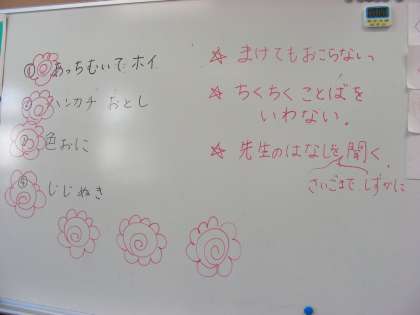 ① あっちむいて ホイ
② ハンカチ おとし
③ 色おに
④ じじぬき
☆ まけてもおこらないっ
☆ ちくちく ことばを
いわない。
☆ 先生のはなしを聞く。
さいごまで しずかに